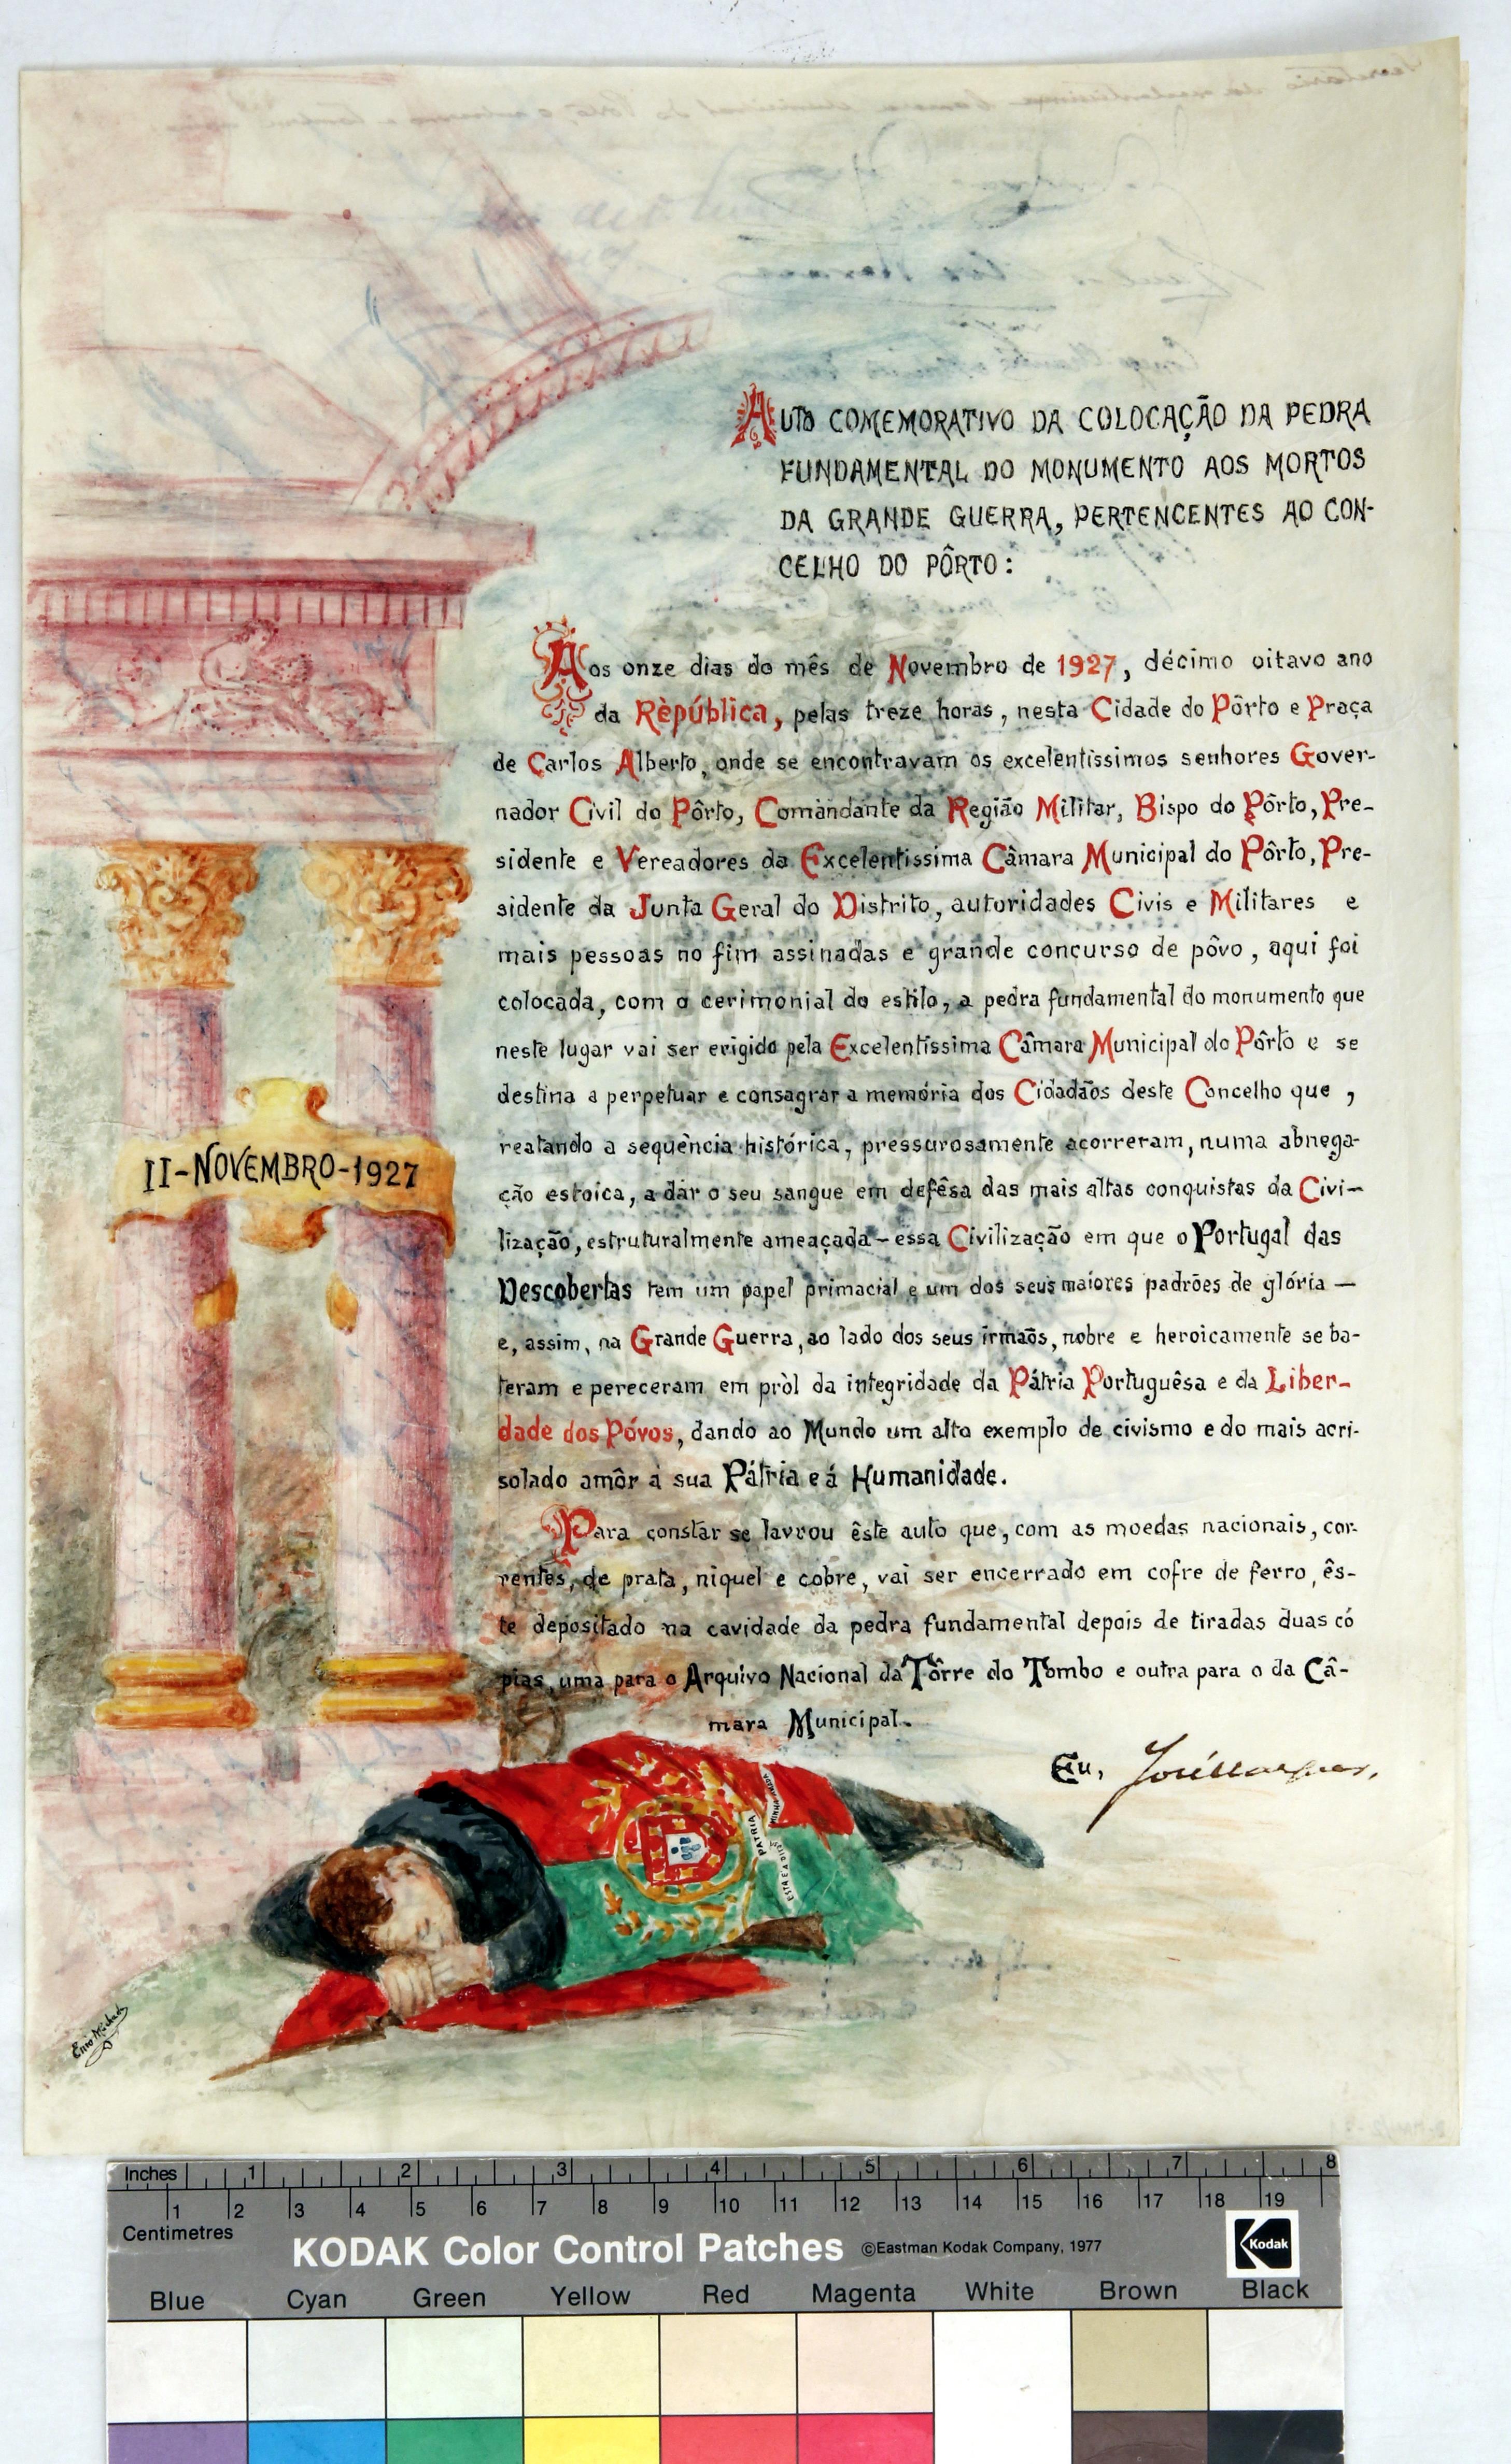 AUTO COMEMORATIVO DA COLOCAÇÃO DA PEDRA
FUNDAMENTAL DO MONUMENTO AOS MORTOS
DA GRANDE GUERRA, PERTENCENTES AO CON-
CELHO DO PÔRTO:
Aos onze dias do mês de Novembro de 1927, décimo oitavo ano
da Rèpública, pelas treze horas, nesta Cidade do Pôrto e Praça
de Carlos Alberto, onde se encontravam os excelentissimos senhores Gover-
nador Civil do Pôrto, Comandante da Região Militar, Bispo do Pôrto, Pre-
sidente e Vereadores da Excelentissima Câmara Municipal do Pôrto, Pre-
sidente da Junta Geral do Distrito, autoridades Civis e Militares e
mais pessoas no fim assinadas e grande concurso de pôvo, aqui foi
colocada, com o cerimonial do estilo, a pedra fundamental do monumento que
neste lugar vai ser erigido pela Excelentíssima Câmara Municipal do Pôrto e se
destina a perpetuar e consagrar a memória dos Cidadãos deste Concelho que,
reatando a sequência histórica, pressurosamente acorreram, numa abnega-
ção estoica, a dar o seu sangue em defêsa das mais altas conquistas da Civi-
lização, estruturalmente ameaçada - essa Civilização em que o Portugal das
Descobertas tem um papel primacial e um dos seus maiores padrões de glória -
e, assim, na Grande Guerra, ao lado dos seus irmãos, nobre e heroicamente se ba-
teram e pereceram em pròl da integridade da Pátria Portuguêsa e da Liber-
dade dos Póvos, dando ao Mundo um alto exemplo de civismo e do mais acri-
solado amôr á sua Pátria e á Humanidade.
Para constar se lavrou êste auto que, com as moedas nacionais, cor-
rentes, de prata, niquel e cobre, vai ser encerrado em cofre de ferro, ês-
te depositado na cavidade da pedra fundamental depois de tiradas duas có
pias, uma para o Arquivo Nacional da Tôrre do Tombo e outra para o da Câ-
mara Municipal.
Eu,
II-NOVEMBRO-1927
ESTA É A DITOSA PATRIA MINHA AMADA
Inches 1 2 3 4 5 6 7 8
1 2 3 4 5 6 7 8 9 10 11 12 13 14 15 16 17 18 19
Centimetres
KODAK Color Control Patches ©Eastman Kodak Company, 1977
Kodak
Blue Cyan Green Yellow Red Magenta White Brown Black